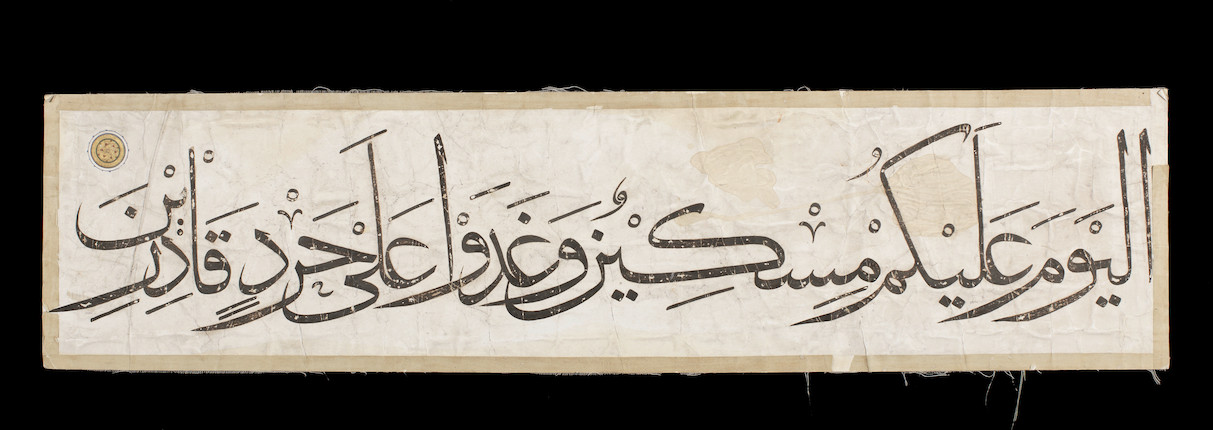 الْيَوْمَ عَلَيْكُمْ مِسْكِينٌ وَغَدَوْا عَلَىٰ حَرْدٍ قَادِرِينَ